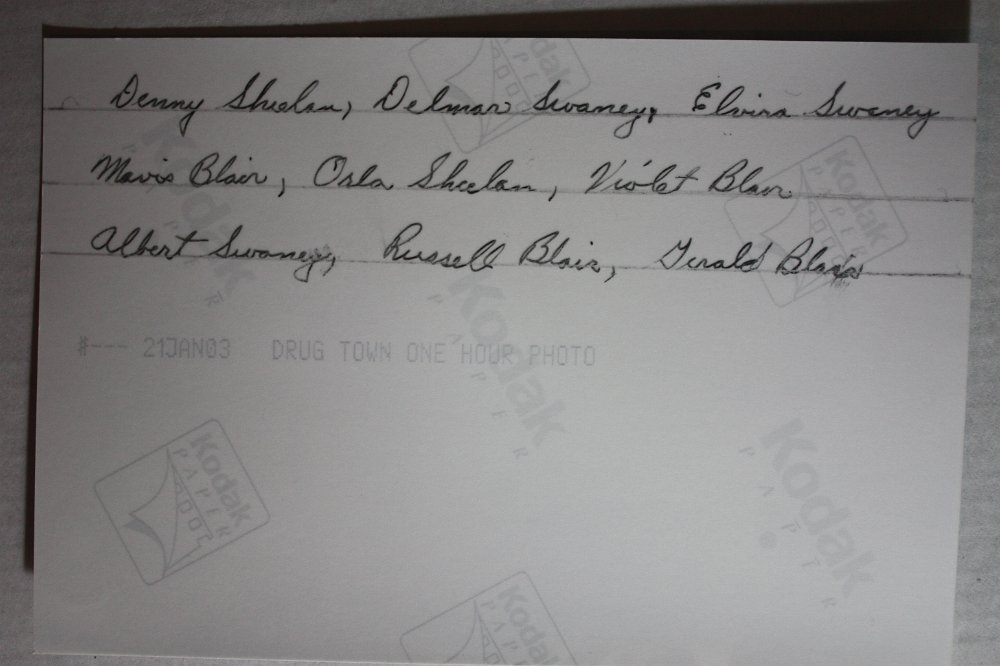 Denny Sheelan, Delmar Swaney, Elvira Swaney
Mavis Blair, Orla Sheelan, Violet Blair
Albert Swaney, Russell Blair, Gerald Blair
#--- 21JAN03 DRUG TOWN ONE HOUR PHOTO
Kodak
PAPER
Kodak
PAPER
Kodak
PAPER
Kodak
PAPER
Kodak
PAPER
Kodak
PAPER
Kodak
PAPER